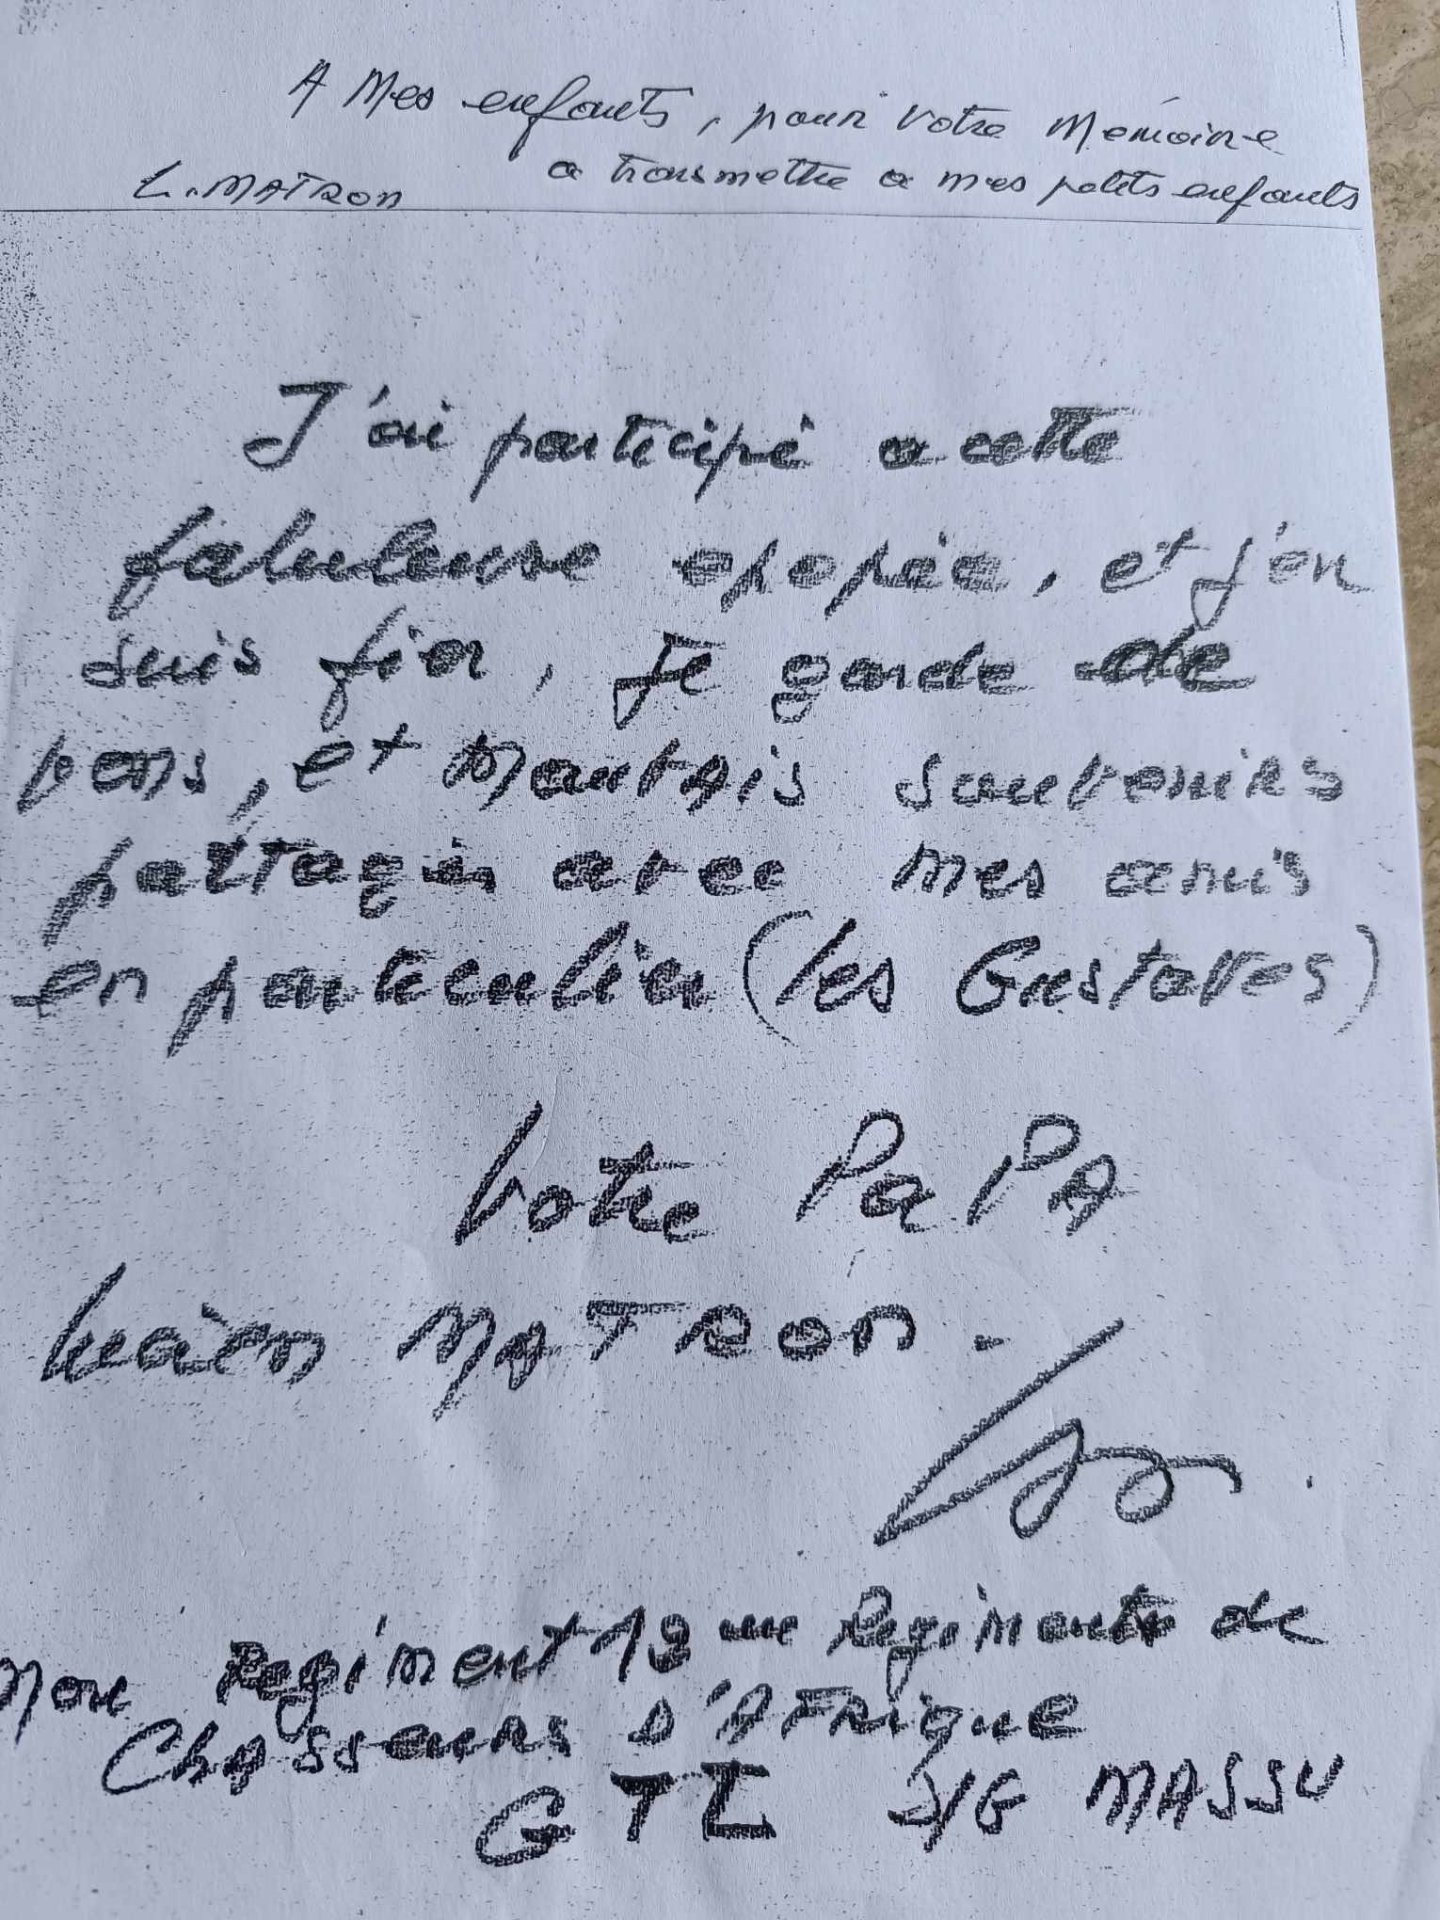 A Mes enfants, pour votre Mémoire
a transmettre a mes petits enfants
L. MATRON
J'ai participé a cette
fabuleuse epopée, et j'en
suis fier, Je garde de
bons, et mauvais souvenirs
partagés avec mes amis
en particulier (les Gustaves)
Votre PaPA
Lucien MATRON.
Mon Regiment 12eme Regiments de
Chasseurs D'AFrique
GTL S/G MASSU